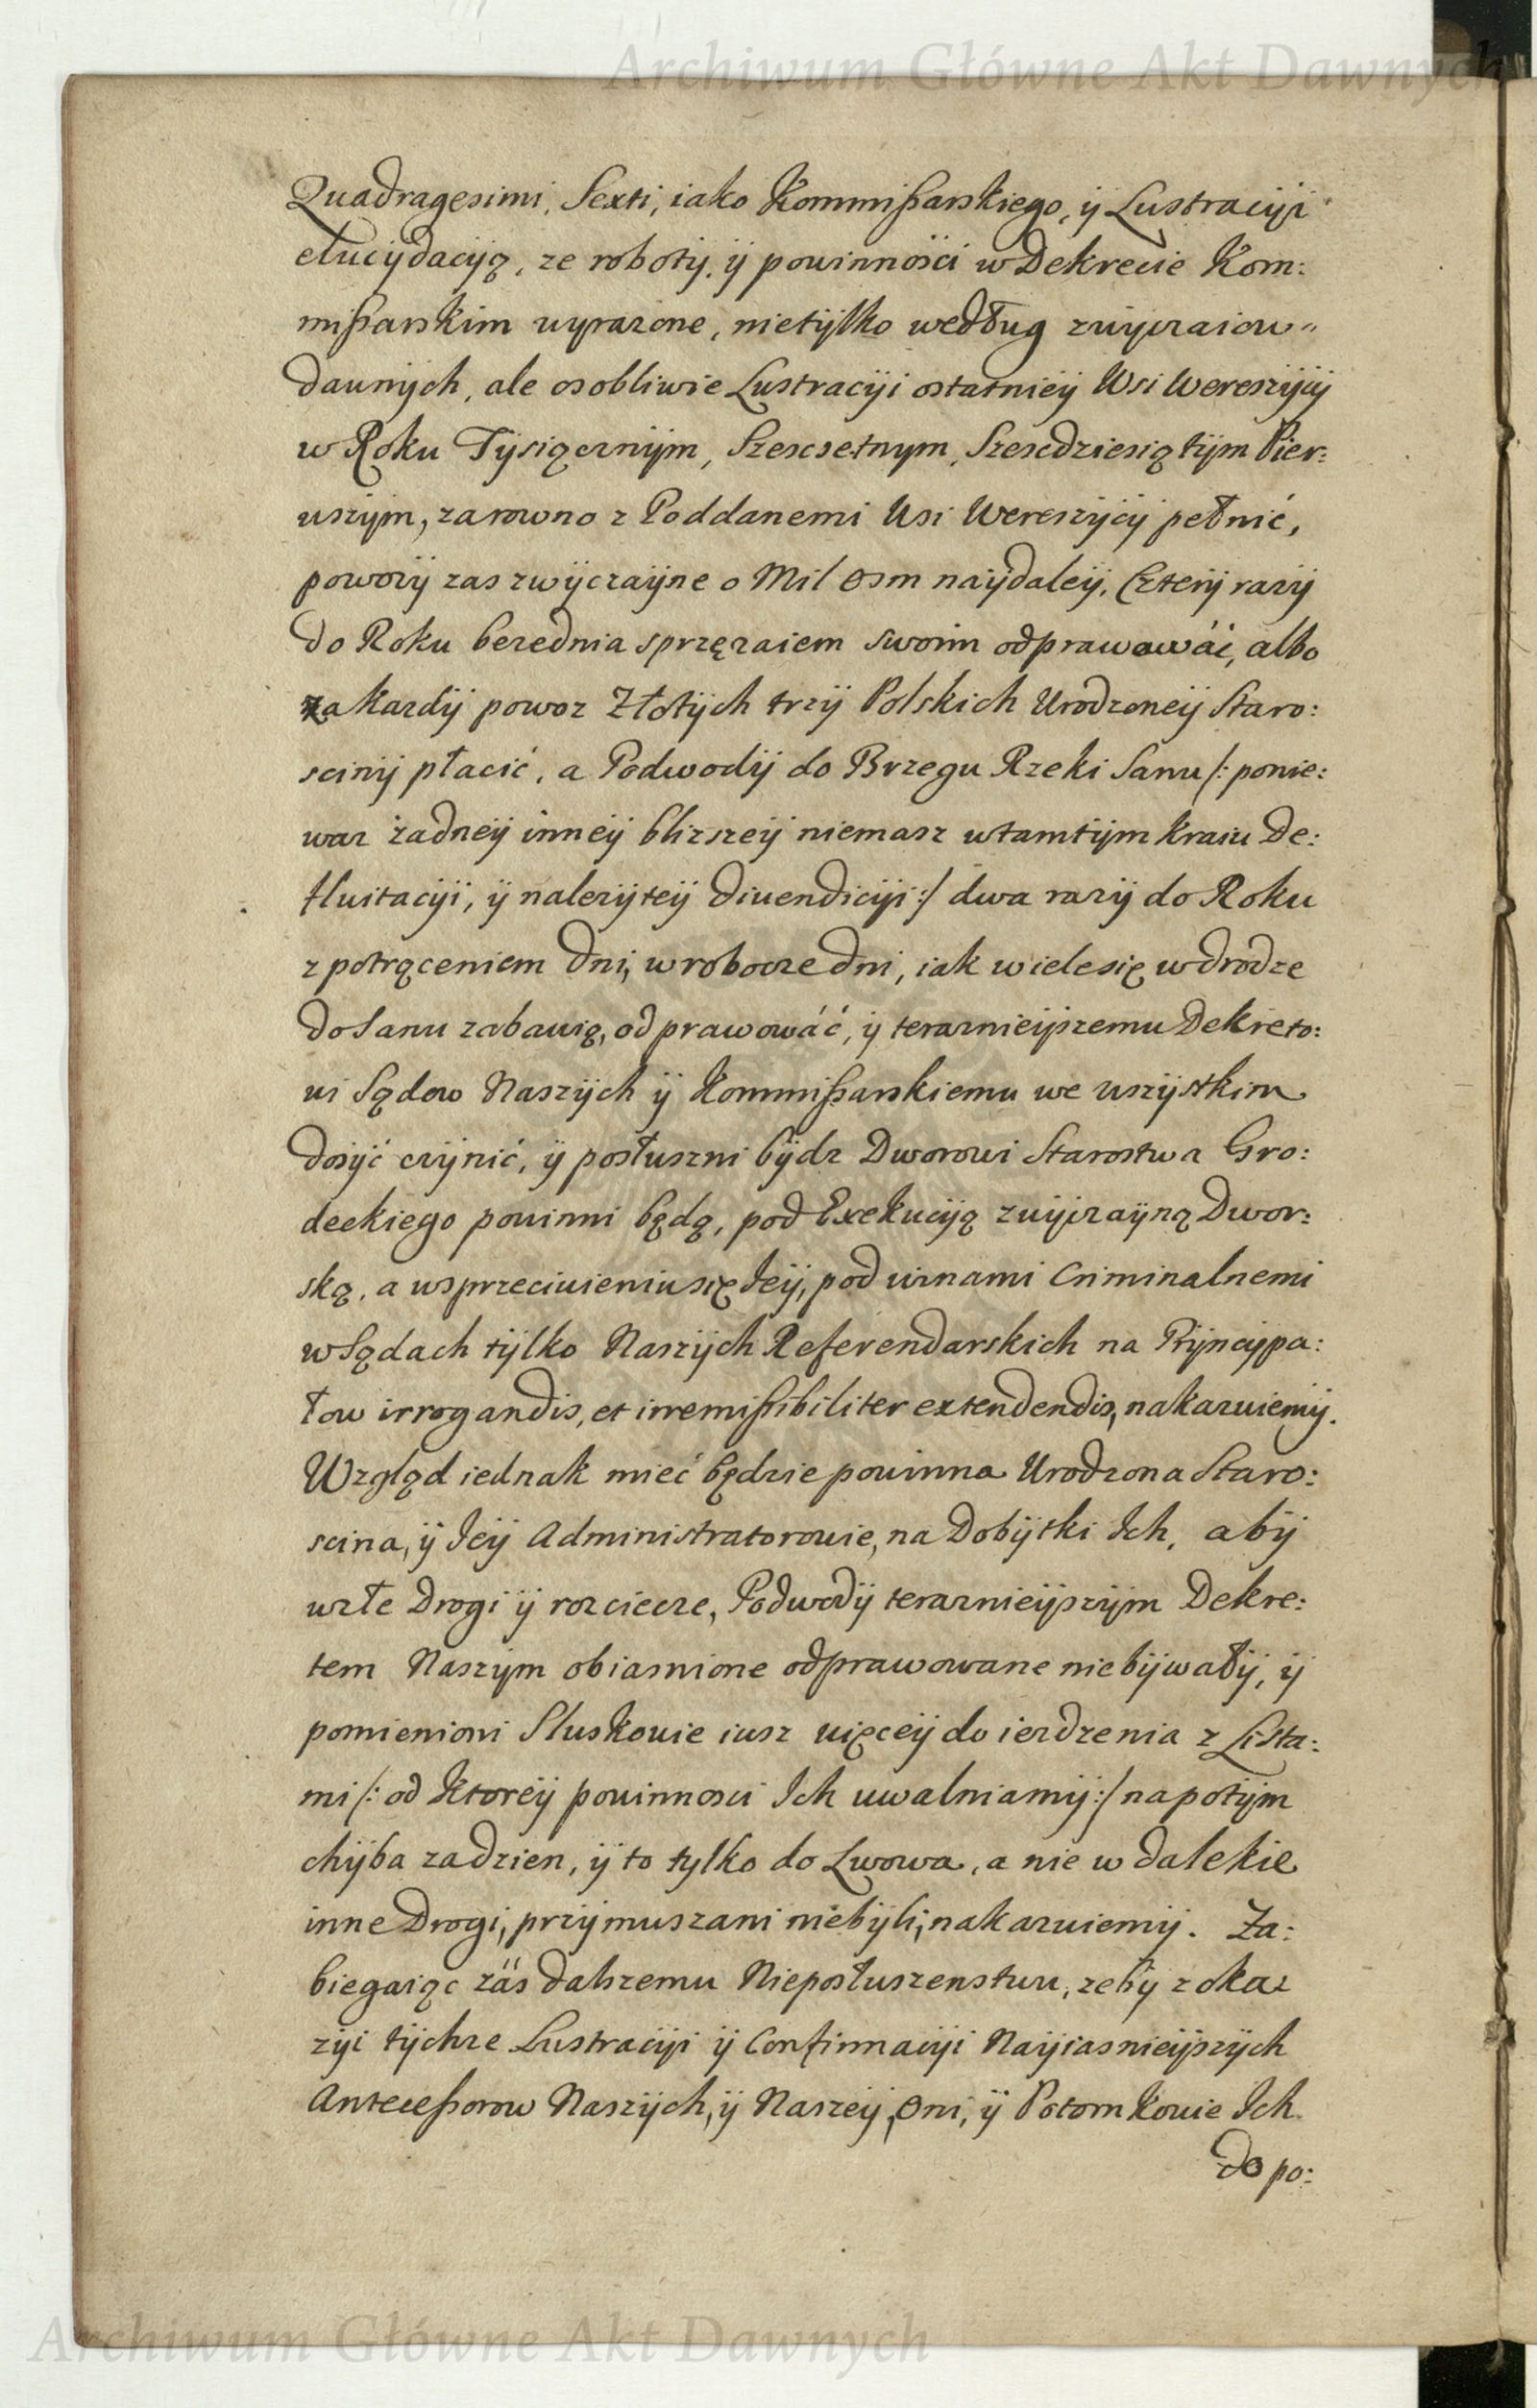 Archiwum Główne Akt Dawnych
Quadragesimi, Sexti, iako Kommißarskiego, ÿ Lustracÿi
elucÿdacÿą, ze robotÿ, ÿ powinnosci w Dekrecie Kom:
mißarskim wyrazone, nietÿlko według zwÿczaiow„
dawnÿch, ale osobliwie Lustracÿi ostatnieÿ Wsi Wereszÿcÿ
w Roku Tÿsiącznÿm, Szescsetnym, Szescdziesiątÿm Pier:
wszÿm, zarowno z Poddanemi Wsi Wereszÿcÿ pełnić,
powozÿ zas zwÿczaÿne o Mil osm naÿdaleÿ, Czterÿ razÿ
do Roku bezednia sprzęzaiem swoim odprawowáć, albo
za kazdÿ powoz Złotÿch trzÿ Polskich Urodzoneÿ Staro:
scinÿ płacić, a Podwodÿ do Brzegu Rzeki Sanu /: ponie:
waz żadneÿ inneÿ blizszeÿ niemasz wtamtÿm Kraiu De:
fluitacÿi, ÿ nalezÿteÿ Divendicÿi :/ dwa razÿ do Roku
z potrąceniem Dni, w robocze Dni, iak wielesię wdrodze
do Sanu zabawią, odprawowáć, ÿ teraznieÿszemu Dekreto:
wi Sądow Naszÿch ÿ Kommißarskiemu we wszÿstkim
dosÿć czÿnić, ÿ posłuszni bÿdz Dworowi Starostwa Gro:
deckiego powinni będą, pod Exekucÿą zwÿczaÿną Dwor:
ską, a wsprzeciwieniusię Jeÿ, pod winami Criminalnemi
w Sądach tÿlko Naszÿch Referendarskich na Prÿncÿpa:
łow irrogandis, et irremißibiliter extendendis, nakazuiemÿ.
Wzgląd iednak mieć będzie powinna Urodzona Staro:
scina, ÿ Jeÿ Administratorowie, na Dobÿtki Ich, abÿ
wzłe Drogi ÿ rozciecze, Podwodÿ teraznieÿszÿm Dekre:
tem Naszÿm obiasnione odprawowane niebÿwałÿ, ÿ
pomienioni Sluskowie iusz więceÿ do iezdzenia z Lista:
mi /: od ktoreÿ powinnosci Ich uwalniamÿ :/ napotÿm
chÿba zadzien, ÿ to tylko do Lwowa, a nie w dalekie
inne Drogi, przÿmuszani niebÿli, nakazuiemÿ. Za:
biegaiąc záś dalszemu Nieposłuszenstwu, zebÿ z oka:
zÿi tÿchze Lustracÿi ÿ Confirmacÿi Naÿiasnieÿszÿch
Anteceßorow Naszÿch, ÿ Naszeÿ, Oni, ÿ Potomkowie Ich
do po:
Archiwum Główne Akt Dawnych